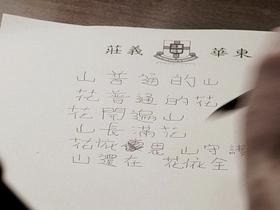 東華義莊
山普通的山
花普通的花
花開遍山
山長滿花
花 山守
山還在 花 全